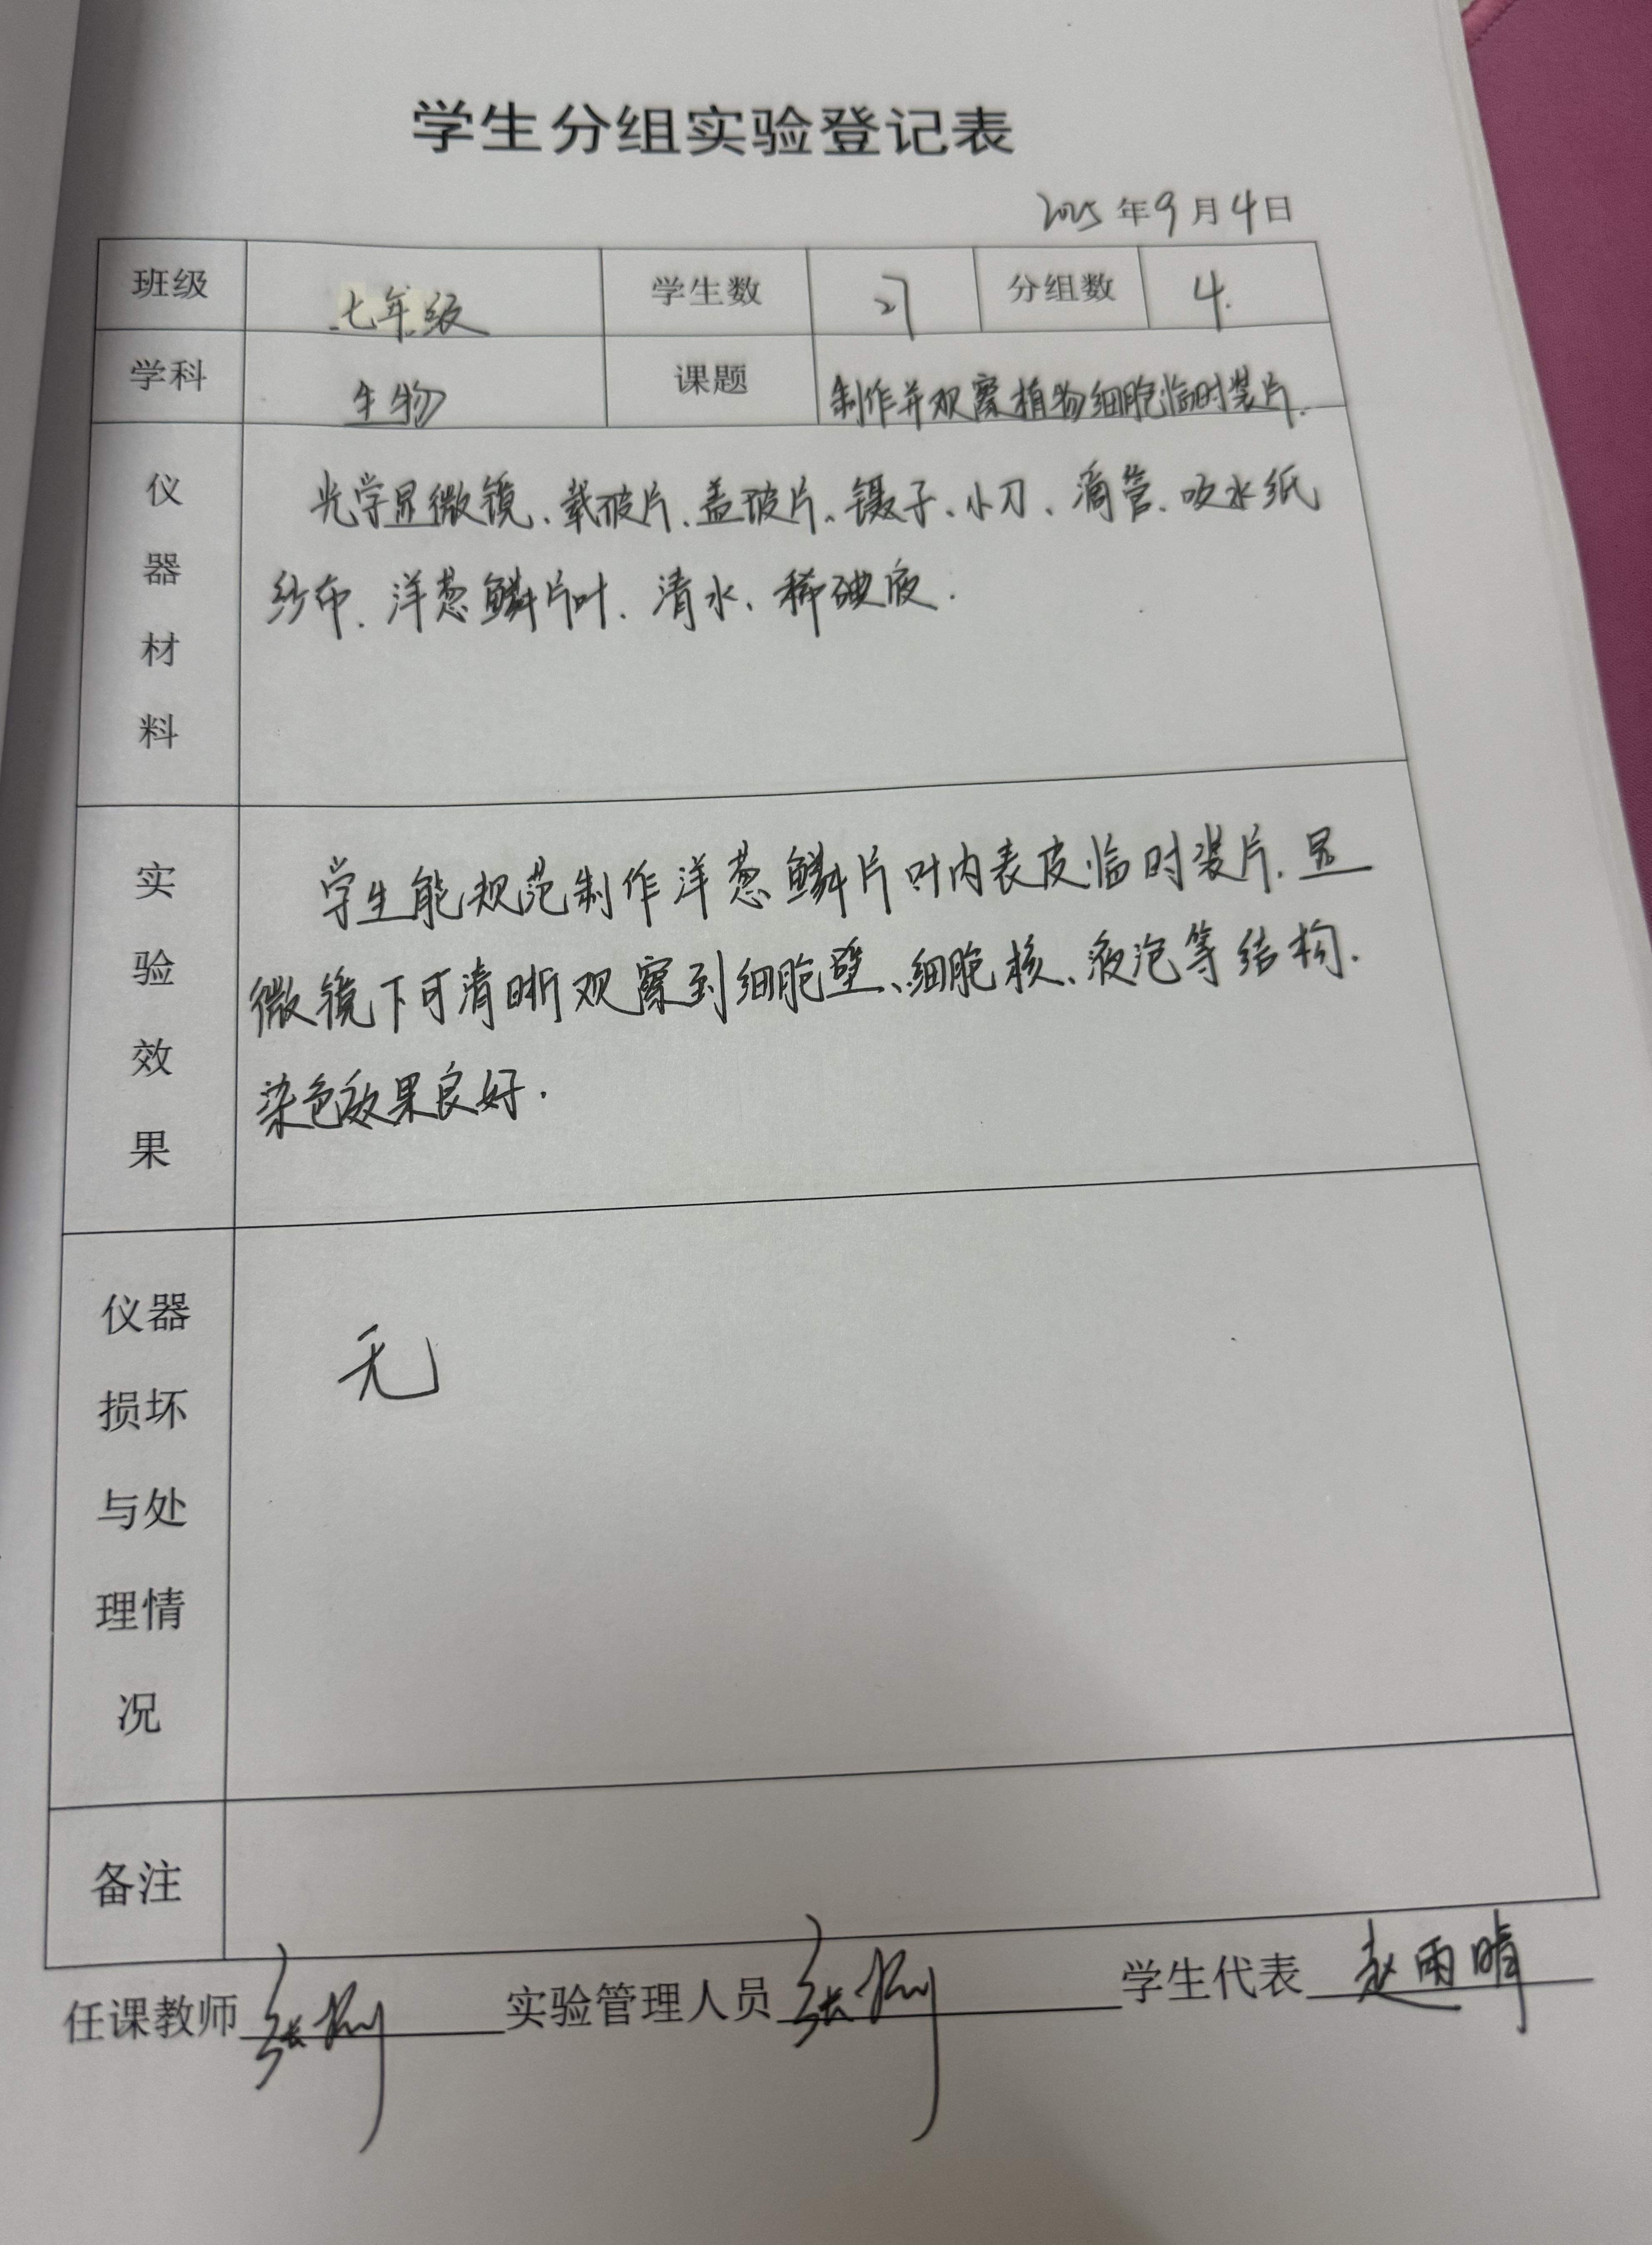 学生分组实验登记表
2025年9月4日
班级 七年级 学生数 27 分组数 4.
学科 生物 课题 制作并观察植物细胞临时装片.
仪器材料
光学显微镜、载玻片、盖玻片、镊子、小刀、滴管、吸水纸
纱布、洋葱鳞片叶、清水、稀碘液.
实验效果
学生能规范制作洋葱鳞片叶内表皮临时装片.显
微镜下可清晰观察到细胞壁、细胞核、液泡等结构.
染色效果良好.
仪器损坏与处理情况
无
备注
任课教师 张 实验管理人员 张 学生代表 赵雨晴